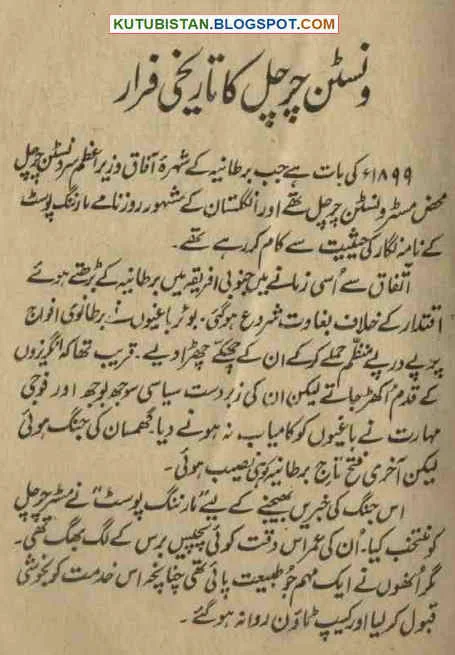 KUTUBISTAN.BLOGSPOT.COM
ونسٹن چرچل کا تاریخی فرار
۱۸۹۹ء کی بات ہے جب برطانیہ کے شہرۂ آفاق وزیر اعظم سر ونسٹن چرچل
محض مسٹر ونسٹن چرچل تھے اور انگلستان کے مشہور روزنامے مارننگ پوسٹ
کے نامہ نگار کی حیثیت سے کام کر رہے تھے۔
اتفاق سے اُسی زمانے میں جنوبی افریقہ میں برطانیہ کے بڑھتے ہوئے
اقتدار کے خلاف بغاوت شروع ہو گئی۔ بوئر باغیوں نے برطانوی افواج
پر پے در پے منظّم حملے کر کے ان کے چھکے چھڑا دیے۔ قریب تھا کہ انگریزوں
کے قدم اُکھڑ جاتے لیکن ان کی زبردست سیاسی سوجھ بوجھ اور فوجی
مہارت نے باغیوں کو کامیاب نہ ہونے دیا۔ گھمسان کی جنگ ہوئی
لیکن آخری فتح تاجِ برطانیہ کو ہی نصیب ہوئی۔
اس جنگ کی خبریں بھیجنے کے لیے "مارننگ پوسٹ" نے مسٹر چرچل
کو منتخب کیا۔ اُن کی عمر اس وقت کوئی پچیس برس کے لگ بھگ تھی۔
مگر اُنھوں نے ایک مہم جُو طبیعت پائی تھی چنانچہ اس خدمت کو بخوشی
قبول کر لیا اور کیپ ٹاؤن روانہ ہو گئے۔